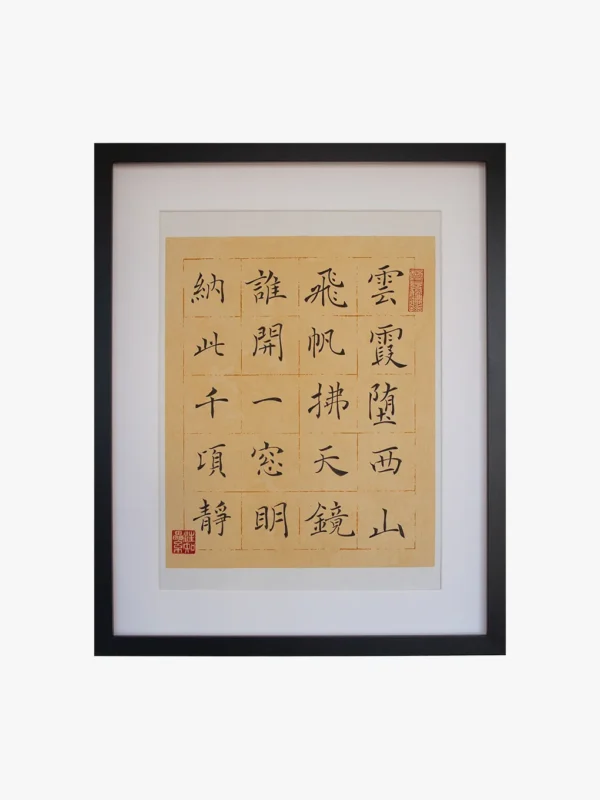 雲霞堕西山
飛帆拂天鏡
誰開一窓明
納此千頃静